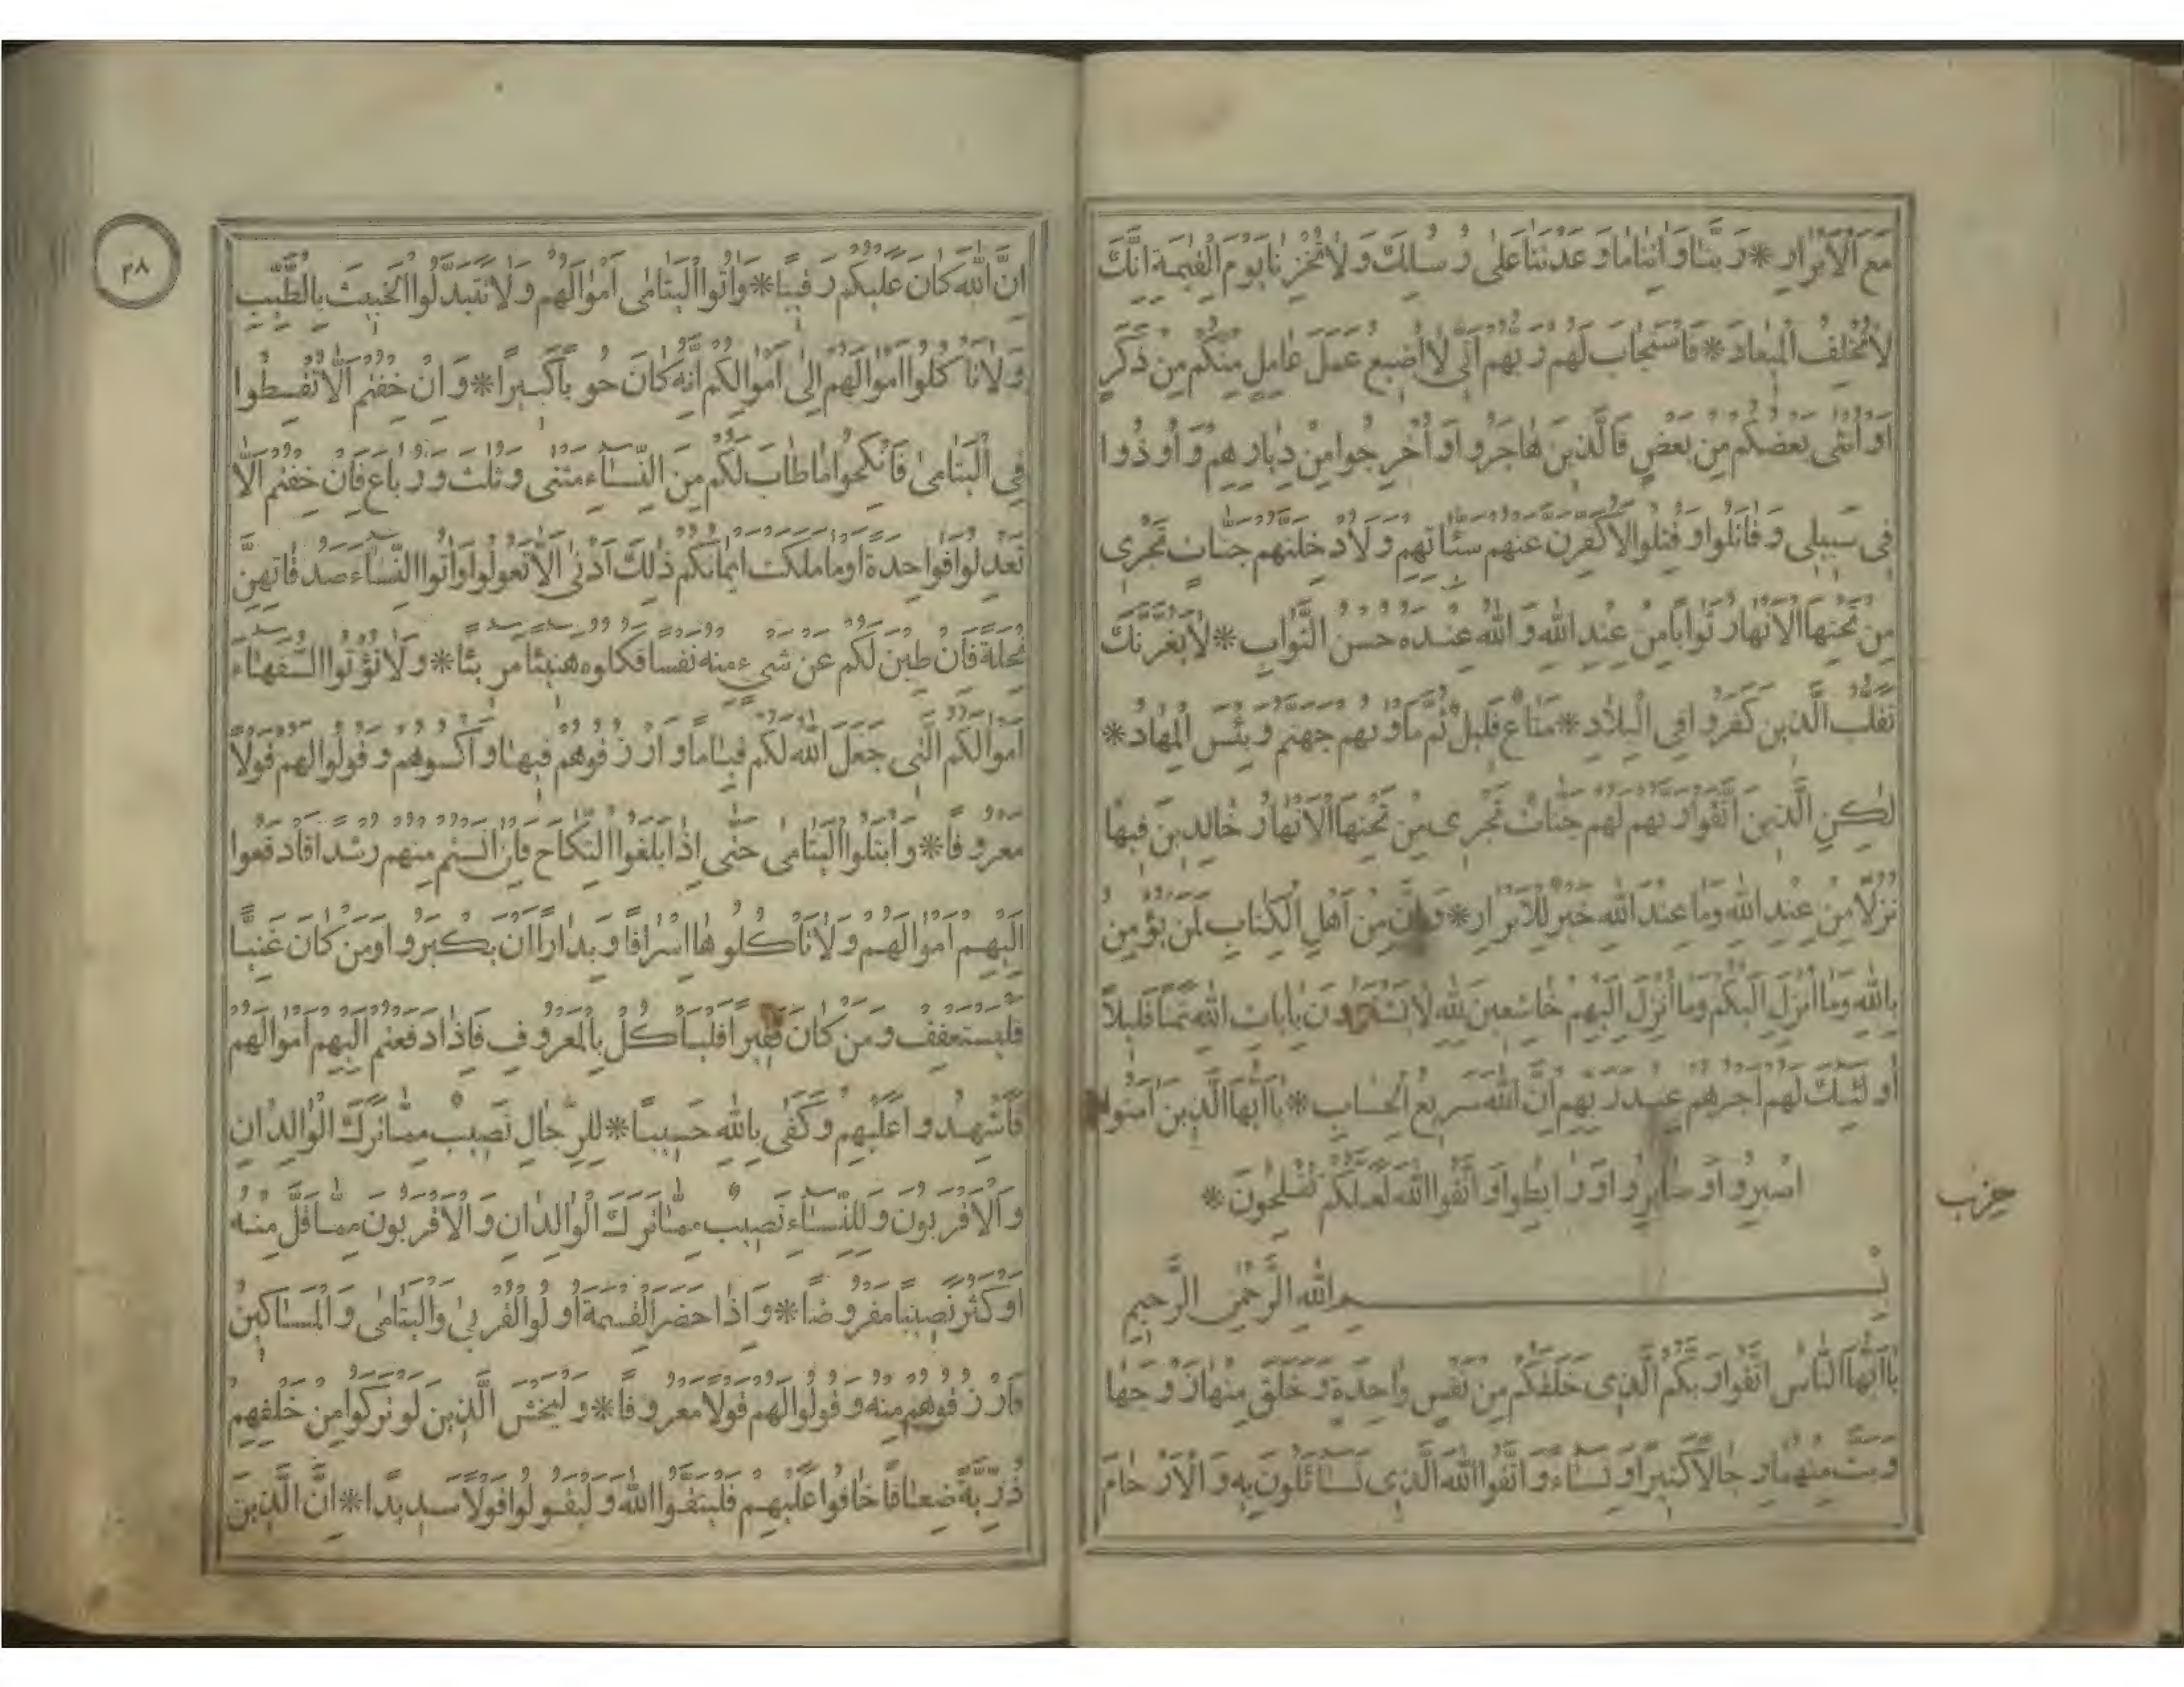 مَعَ الْاَبْرَارِ * رَبَّنَا وَاٰتِنَا مَا وَعَدْتَنَا عَلٰى رُسُلِكَ وَلَا تُخْزِنَا يَوْمَ الْقِيٰمَةِ اِنَّكَ
لَا تُخْلِفُ الْمِيعَادَ * فَاسْتَجَابَ لَهُمْ رَبُّهُمْ اَنِّي لَا اُضِيعُ عَمَلَ عَامِلٍ مِنْكُمْ مِنْ ذَكَرٍ
اَوْ اُنْثٰى بَعْضُكُمْ مِنْ بَعْضٍ فَالَّذِينَ هَاجَرُوا وَاُخْرِجُوا مِنْ دِيَارِهِمْ وَاُوذُوا
فِي سَبِيلِي وَقَاتَلُوا وَقُتِلُوا لَاُكَفِّرَنَّ عَنْهُمْ سَيِّئَاتِهِمْ وَلَاُدْخِلَنَّهُمْ جَنَّاتٍ تَجْرِي
مِنْ تَحْتِهَا الْاَنْهَارُ ثَوَابًا مِنْ عِنْدِ اللّٰهِ وَاللّٰهُ عِنْدَهُ حُسْنُ الثَّوَابِ * لَا يَغُرَّنَّكَ
تَقَلُّبُ الَّذِينَ كَفَرُوا فِي الْبِلَادِ * مَتَاعٌ قَلِيلٌ ثُمَّ مَأْوٰيهُمْ جَهَنَّمُ وَبِئْسَ الْمِهَادُ *
لٰكِنِ الَّذِينَ اتَّقَوْا رَبَّهُمْ لَهُمْ جَنَّاتٌ تَجْرِي مِنْ تَحْتِهَا الْاَنْهَارُ خَالِدِينَ فِيهَا
نُزُلًا مِنْ عِنْدِ اللّٰهِ وَمَا عِنْدَ اللّٰهِ خَيْرٌ لِلْاَبْرَارِ * وَاِنَّ مِنْ اَهْلِ الْكِتَابِ لَمَنْ يُؤْمِنُ
بِاللّٰهِ وَمَا اُنْزِلَ اِلَيْكُمْ وَمَا اُنْزِلَ اِلَيْهِمْ خَاشِعِينَ لِلّٰهِ لَا يَشْتَرُونَ بِاٰيَاتِ اللّٰهِ ثَمَنًا قَلِيلًا
اُولٰئِكَ لَهُمْ اَجْرُهُمْ عِنْدَ رَبِّهِمْ اِنَّ اللّٰهَ سَرِيعُ الْحِسَابِ * يَا اَيُّهَا الَّذِينَ اٰمَنُوا
اصْبِرُوا وَصَابِرُوا وَرَابِطُوا وَاتَّقُوا اللّٰهَ لَعَلَّكُمْ تُفْلِحُونَ *
حزب
بِسْمِ اللّٰهِ الرَّحْمٰنِ الرَّحِيمِ
يَا اَيُّهَا النَّاسُ اتَّقُوا رَبَّكُمُ الَّذِي خَلَقَكُمْ مِنْ نَفْسٍ وَاحِدَةٍ وَخَلَقَ مِنْهَا زَوْجَهَا
وَبَثَّ مِنْهُمَا رِجَالًا كَثِيرًا وَنِسَاءً وَاتَّقُوا اللّٰهَ الَّذِي تَسَائَلُونَ بِهِ وَالْاَرْحَامَ
٣٨
اِنَّ اللّٰهَ كَانَ عَلَيْكُمْ رَقِيبًا * وَاٰتُوا الْيَتَامٰى اَمْوَالَهُمْ وَلَا تَتَبَدَّلُوا الْخَبِيثَ بِالطَّيِّبِ
وَلَا تَأْكُلُوا اَمْوَالَهُمْ اِلٰى اَمْوَالِكُمْ اِنَّهُ كَانَ حُوبًا كَبِيرًا * وَاِنْ خِفْتُمْ اَلَّا تُقْسِطُوا
فِي الْيَتَامٰى فَانْكِحُوا مَا طَابَ لَكُمْ مِنَ النِّسَاءِ مَثْنٰى وَثُلٰثَ وَرُبَاعَ فَاِنْ خِفْتُمْ اَلَّا
تَعْدِلُوا فَوَاحِدَةً اَوْ مَا مَلَكَتْ اَيْمَانُكُمْ ذٰلِكَ اَدْنٰى اَلَّا تَعُولُوا وَاٰتُوا النِّسَاءَ صَدُقَاتِهِنَّ
نِحْلَةً فَاِنْ طِبْنَ لَكُمْ عَنْ شَيْءٍ مِنْهُ نَفْسًا فَكُلُوهُ هَنِيئًا مَرِيئًا * وَلَا تُؤْتُوا السُّفَهَاءَ
اَمْوَالَكُمُ الَّتِي جَعَلَ اللّٰهُ لَكُمْ قِيَامًا وَارْزُقُوهُمْ فِيهَا وَاكْسُوهُمْ وَقُولُوا لَهُمْ قَوْلًا
مَعْرُوفًا * وَابْتَلُوا الْيَتَامٰى حَتّٰى اِذَا بَلَغُوا النِّكَاحَ فَاِنْ اٰنَسْتُمْ مِنْهُمْ رُشْدًا فَادْفَعُوا
اِلَيْهِمْ اَمْوَالَهُمْ وَلَا تَأْكُلُوهَا اِسْرَافًا وَبِدَارًا اَنْ يَكْبَرُوا وَمَنْ كَانَ غَنِيًّا
فَلْيَسْتَعْفِفْ وَمَنْ كَانَ فَقِيرًا فَلْيَأْكُلْ بِالْمَعْرُوفِ فَاِذَا دَفَعْتُمْ اِلَيْهِمْ اَمْوَالَهُمْ
فَاَشْهِدُوا عَلَيْهِمْ وَكَفٰى بِاللّٰهِ حَسِيبًا * لِلرِّجَالِ نَصِيبٌ مِمَّا تَرَكَ الْوَالِدَانِ
وَالْاَقْرَبُونَ وَلِلنِّسَاءِ نَصِيبٌ مِمَّا تَرَكَ الْوَالِدَانِ وَالْاَقْرَبُونَ مِمَّا قَلَّ مِنْهُ
اَوْ كَثُرَ نَصِيبًا مَفْرُوضًا * وَاِذَا حَضَرَ الْقِسْمَةَ اُولُوا الْقُرْبٰى وَالْيَتَامٰى وَالْمَسَاكِينُ
فَارْزُقُوهُمْ مِنْهُ وَقُولُوا لَهُمْ قَوْلًا مَعْرُوفًا * وَلْيَخْشَ الَّذِينَ لَوْ تَرَكُوا مِنْ خَلْفِهِمْ
ذُرِّيَّةً ضِعَافًا خَافُوا عَلَيْهِمْ فَلْيَتَّقُوا اللّٰهَ وَلْيَقُولُوا قَوْلًا سَدِيدًا * اِنَّ الَّذِينَ